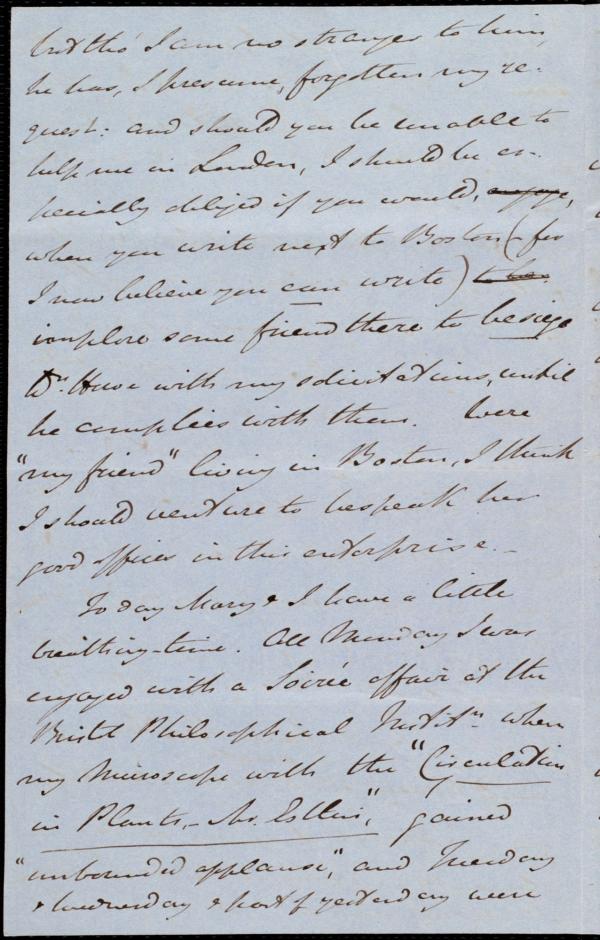 but tho' I am no stranger to him,
he has, I presume, forgotten my re-
quest: and should you be unable to
help me in London, I should be es-
pecially obliged if you would, engage,
when you write next to Boston (for
I now believe you can write) to
implore some friend there to besiege
Dr. Howe with my solicitations, until
he complies with them. Were
"my friend" living in Boston, I think
I should venture to bespeak her
good offices in this enterprise.—
To day Mary & I have a little
breathing-time. All Monday I was
engaged with a Soirée affair at the
Bristol Philosophical Instit.n when
my Microscope with the "Circulation
in Plants,— Mr. Estlin," gained
"unbounded applause", and Tuesday
& Wednesday & part of yesterday were